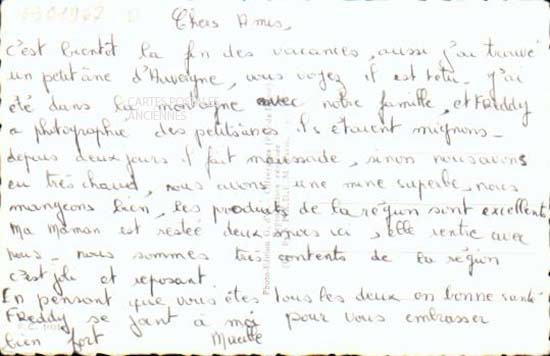 Chers Amis,
c'est bientôt la fin des vacances, aussi j'ai trouvé
un petit âne d'Auvergne, vous voyez il est têtu. j'ai
été dans la montagne avec notre famille, et FReddy
a photographié des petits ânes ils étaient mignons_
depuis deux jours il fait maussade, sinon nous avons
eu très chaud, nous avons une mine superbe, nous
mangeons bien, les produits de la région sont excellents
Ma Maman est restée deux mois ici, elle rentre avec
nous_ nous sommes très contents de la région
c'est joli et reposant
En pensant que vous êtes tous les deux en bonne santé
FReddy se joint à moi pour vous embrasser
bien fort
CARTES POSTALES
ANCIENNES